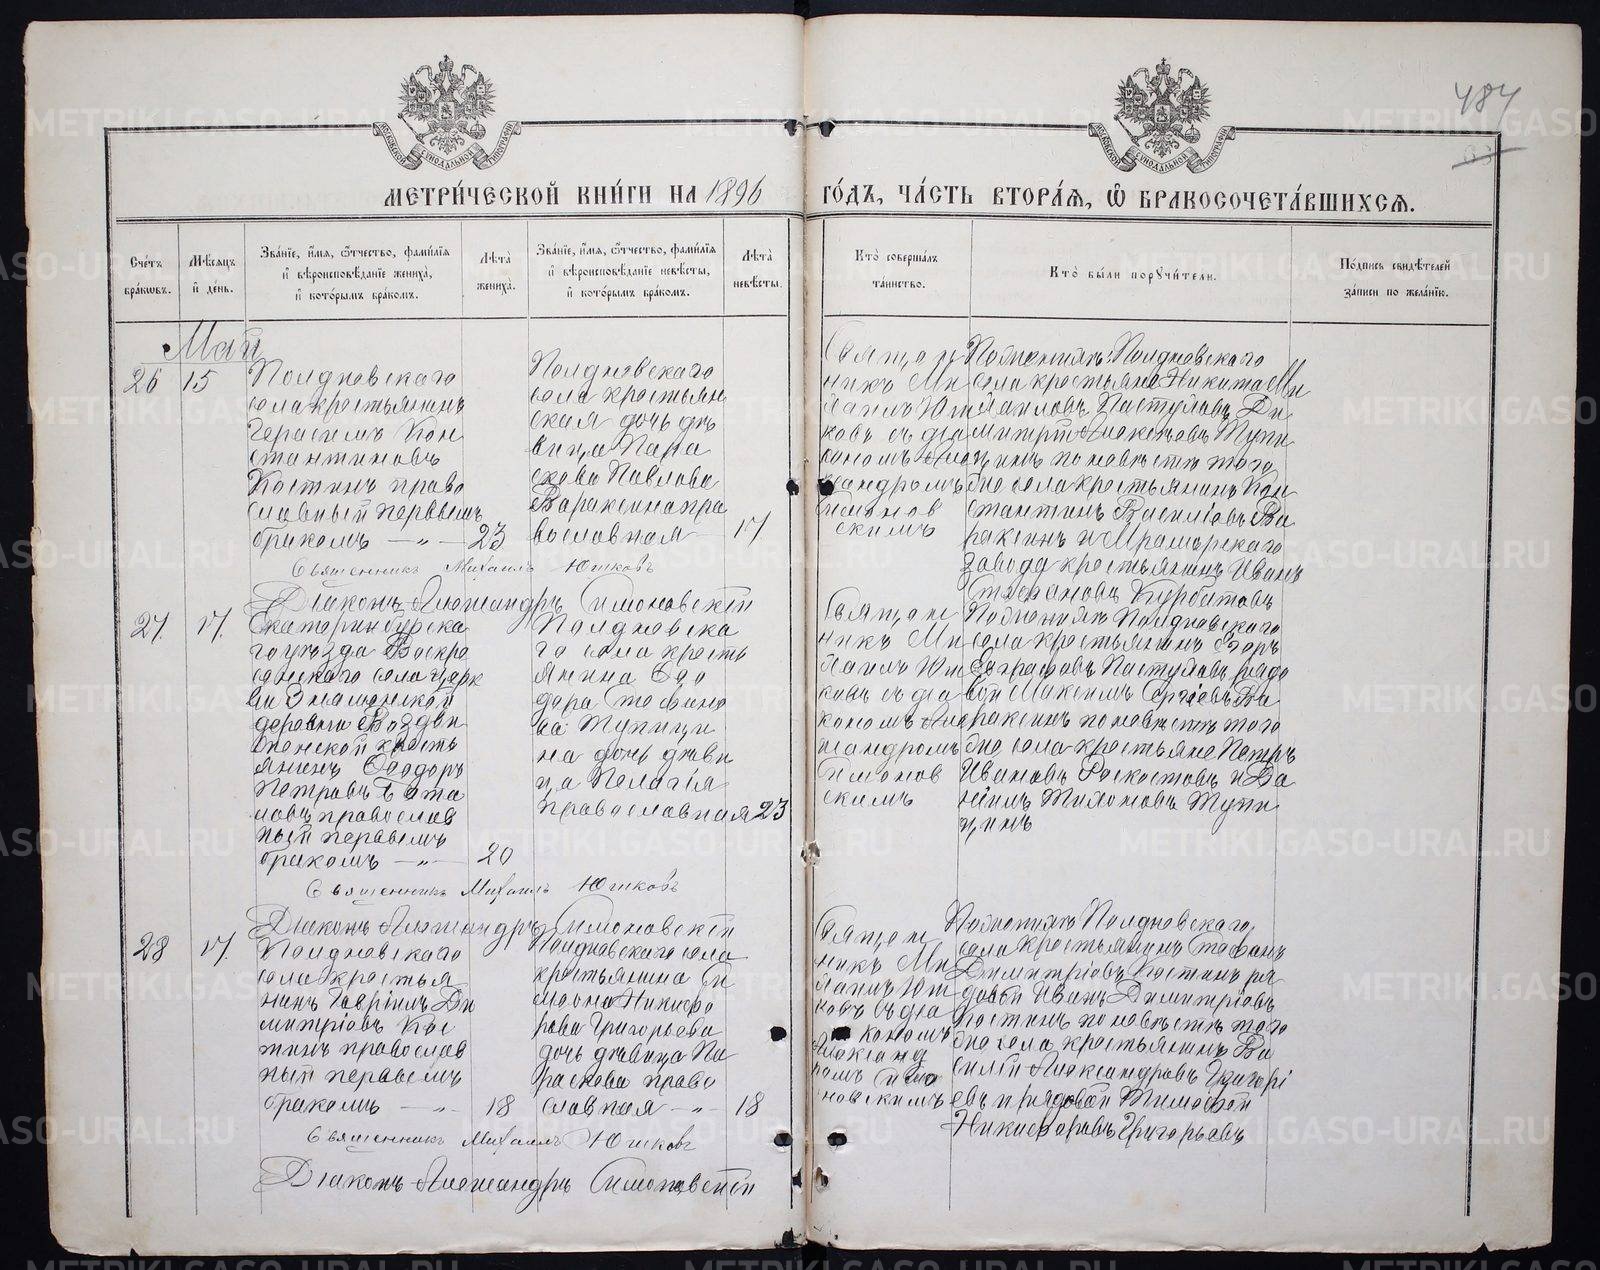 484
МОСКОВСКОЙ СѴНОДАЛЬНОЙ ТИПОГРАФІИ
МОСКОВСКОЙ СѴНОДАЛЬНОЙ ТИПОГРАФІИ
МЕТРИ́ЧЕСКОЙ КНИ́ГИ НА 1896 ГО́ДЪ, ЧА́СТЬ ВТОРА́Ѧ, Ѽ БРАКОСОЧЕТА́ВШИХСѦ.
Сче́тъ
бра́кωвъ.
Мѣ́сяцъ
и де́нь.
Зва́нїе, и́мя, ѻ́тчество, фами́лїя
и вѣроисповѣ́данїе жениха̀,
и кото́рымъ бра́комъ.
Лѣта̀
жениха̀.
Зва́нїе, и́мя, ѻ́тчество, фами́лїя
и вѣроисповѣ́данїе невѣ́сты,
и кото́рымъ бра́комъ.
Лѣта̀
невѣ́сты.
Кто̀ соверша́лъ
та́инство.
Кто̀ бы́ли порꙋчи́тели.
По́дпись свидѣ́телей
за́писи по жела́нїю.
Май
26
15
Полдневскаго
села крестьянинъ
Герасимъ Кон
стантиновъ
Костинъ право
славный первымъ
бракомъ — „ — 23
Полдневскаго
села крестьян
ская дочь дѣ
вица Пара
скева Павлова
Вараксина пра
вославная 17
Священ
никъ Ми
хаилъ Юш
ковъ съ діа
кономъ Алек
сандромъ
Симонов
скимъ
По женихѣ: Полдневскаго
села крестьяне Никита Ми
хаиловъ Пастуховъ, Ди
митрій Алексѣевъ Тупи
цинъ по невѣстѣ того
же села крестьянинъ Кон
стантинъ Василіевъ Ва
раксинъ и Мраморскаго
завода крестьянинъ Иванъ
Стефановъ Курбатовъ
Священникъ Михаилъ Юшковъ
Діаконъ Александръ Симоновскій
27.
17.
Екатеринбурска
го уѣзда Воскре
сенскаго села церк
ви Знаменской
деревни Воздви
женской кресть
янинъ Ѳеодоръ
Петровъ
новъ, православ
ный первымъ
бракомъ — „ — 20
Полдневска
го села кресть
янина Ѳео
дора Стефано
ва Тупици
на дочь дѣви
ца Пелагія
православная 23
Священ
никъ Ми
хаилъ Юш
ковъ съ діа
кономъ Алек
сандромъ
Симонов
скимъ
По женихѣ Полдневскаго
села крестьянинъ Егоръ
Евграфовъ Пастуховъ, рядо
вой Максимъ Сергіевъ Ва
раксинъ по невѣстѣ того
же села крестьяне Петръ
Ивановъ Фоскостовъ и Да
ніилъ Тихоновъ Тупи
цинъ
Священникъ Михаилъ Юшковъ
Діаконъ Александръ Симоновскій
28
17.
Полдневскаго
села крестья
нинъ Гавріилъ Ди
митріовъ Кос
тинъ православ
ный первымъ
бракомъ — „ — 18
Полдневскаго села
крестьянина Си
меона Никифо
рова Григорьева
дочь дѣвица Па
раскева право
славная — „ — 18
Священ
никъ Ми
хаилъ Юш
ковъ съ діа
кономъ
Александ
ромъ Симо
новскимъ
По женихѣ Полдневскаго
села крестьянинъ Стефанъ
Димитріовъ Костинъ ря
довой Иванъ Димитріовъ
Костинъ по невѣстѣ того
же села крестьянинъ Ва
силій Александровъ Григорі
евъ и рядовой Тимофей
Никифоровъ Григорьевъ
Священникъ Михаилъ Юшковъ
Діаконъ Александръ Симоновскій
METRIKI.GASO-URAL.RU